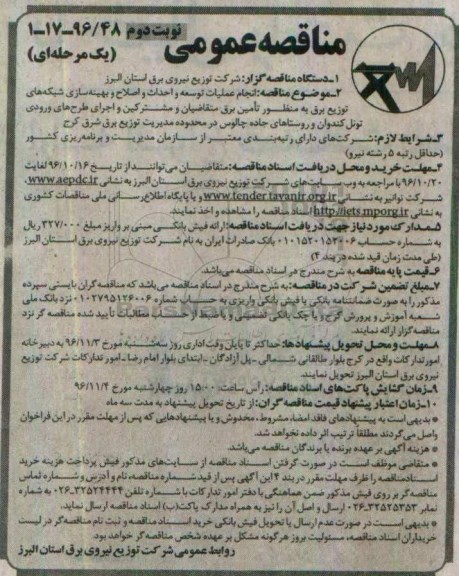 نوبت دوم ۹۶/۴۸-۱۷-۱
مناقصه عمومی (یک مرحله‌ای)
۱-دستگاه مناقصه گزار: شرکت توزیع نیروی برق استان البرز
۲-موضوع مناقصه: انجام عملیات توسعه و احداث و اصلاح و بهینه‌سازی شبکه‌های
توزیع برق به منظور تأمین برق متقاضیان و مشترکین و اجرای طرح‌های ورودی
تونل کندوان و روستاهای جاده چالوس در محدوده مدیریت توزیع برق شرق کرج
۳-شرایط لازم: شرکت‌های دارای رتبه‌بندی معتبر از سازمان مدیریت و برنامه‌ریزی کشور
(حداقل رتبه ۵ رشته نیرو)
۴-مهلت خرید و محل دریافت اسناد مناقصه: متقاضیان می‌توانند از تاریخ ۹۶/۱۰/۱۶ لغایت
۹۶/۱۰/۲۰ با مراجعه به وب سایت‌های شرکت توزیع نیروی برق استان البرز به نشانی www.aepdc.ir،
شرکت توانیر به نشانی www.tender.tavanir.org.ir و یا پایگاه اطلاع رسانی ملی مناقصات کشوری
به نشانی http://iets.mporg.ir اسناد مناقصه را مشاهده و اخذ نمایند.
۵-مدارک مورد نیاز جهت دریافت اسناد مناقصه: ارائه فیش بانکی مبنی بر واریز مبلغ ۳۲۷/۰۰۰ ریال
به شماره حساب ۰۱۰۱۵۲۰۱۵۳۰۰۶ بانک صادرات ایران به نام شرکت توزیع نیروی برق استان البرز
(طی مدت زمان قید شده در بند ۴)
۶-قیمت پایه مناقصه به شرح مندرج در اسناد مناقصه می‌باشد.
۷-مبلغ تضمین شرکت در مناقصه: به شرح مندرج در اسناد مناقصه می‌باشد که مناقصه گران بایستی سپرده
مذکور را به صورت ضمانتنامه بانکی یا فیش بانکی واریزی به حساب شماره ۰۱۰۲۷۹۵۱۲۶۰۰۶ نزد بانک ملی
شعبه آموزش و پرورش کرج و یا چک بانکی تضمینی و یا حاصل از حساب مطالبات تأیید شده مناقصه گر نزد
مناقصه گزار ارائه نمایند.
۸-مهلت و محل تحویل پیشنهادها: حداکثر تا پایان وقت اداری روز سه‌شنبه مورخ ۹۶/۱۱/۳ به دبیرخانه
امور تدارکات واقع در کرج بلوار طالقانی شمالی - پل آزادگان - ابتدای بلوار امام رضا - امور تدارکات شرکت توزیع
نیروی برق استان البرز تحویل نمایند.
۹-زمان گشایش پاکت‌های اسناد مناقصه: رأس ساعت ۱۵:۰۰ روز چهارشنبه مورخ ۹۶/۱۱/۴
۱۰-زمان اعتبار پیشنهاد قیمت مناقصه گران: از تاریخ تحویل پیشنهاد به مدت سه ماه
* بدیهی است به پیشنهادهای فاقد امضاء، مشروط، مخدوش و یا پیشنهادهایی که پس از مهلت مقرر در این فراخوان
واصل می‌گردند مطلقاً ترتیب اثر داده نخواهد شد.
* هزینه آگهی بر عهده برنده یا برندگان مناقصه می‌باشد.
* متقاضی موظف است در صورت گرفتن اسناد مناقصه از سایت‌های مذکور فیش پرداخت هزینه خرید
اسناد مناقصه را ظرف مهلت مقرر در بند ۴ این آگهی پس از قید شماره مناقصه، نام و آدرس و شماره تماس
مناقصه‌گر بر روی فیش مذکور ضمن هماهنگی با دفتر امور تدارکات با شماره تلفن ۳۲۵۲۴۴۴۴-۰۲۶ به شماره
نمابر ۳۲۵۲۵۳۵۳-۰۲۶ ارسال و اصل آن را نیز به همراه مدارک پاکت(ب) اسناد مناقصه ارسال نماید.
* بدیهی است در صورت عدم ارسال یا تحویل فیش بانکی خرید اسناد مناقصه و ثبت نام مناقصه گر در لیست
خریداران اسناد مناقصه، مسئولیت بروز هرگونه مشکل بر عهده شخص مناقصه‌گر خواهد بود.
روابط عمومی شرکت توزیع نیروی برق استان البرز